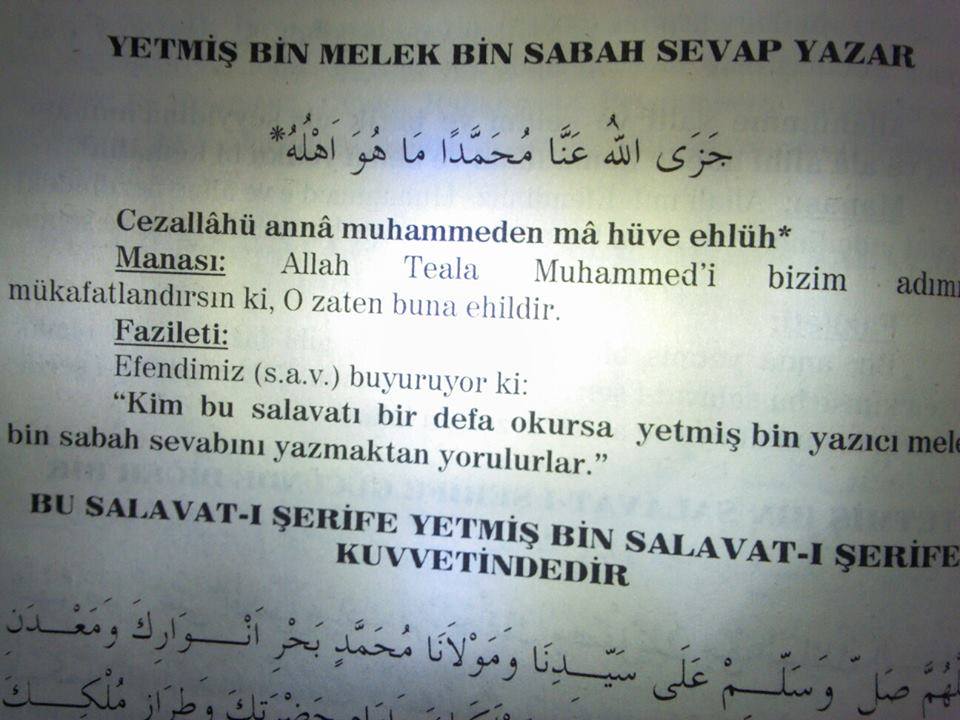 YETMİŞ BİN MELEK BİN SABAH SEVAP YAZAR
جَزَى اللهُ عَنَّا مُحَمَّدًا مَا هُوَ اَهْلُهُ*
Cezallâhü annâ muhammeden mâ hüve ehlüh*
Manası: Allah Teala Muhammed'i bizim adımı
mükafatlandırsın ki, O zaten buna ehildir.
Fazileti:
Efendimiz (s.a.v.) buyuruyor ki:
"Kim bu salavatı bir defa okursa yetmiş bin yazıcı mele
bin sabah sevabını yazmaktan yorulurlar."
BU SALAVAT-I ŞERİFE YETMİŞ BİN SALAVAT-I ŞERİFE
KUVVETİNDEDİR
لّٰهُمَّ صَلِّ وَسَلِّمْ عَلَى سَيِّدِنَا وَمَوْلَانَا مُحَمَّدٍ بَحْرِ اَنْوَارِكَ وَمَعْدَنِ
حَضْرَتِكَ وَطِرَازِ مُلْكِكَ